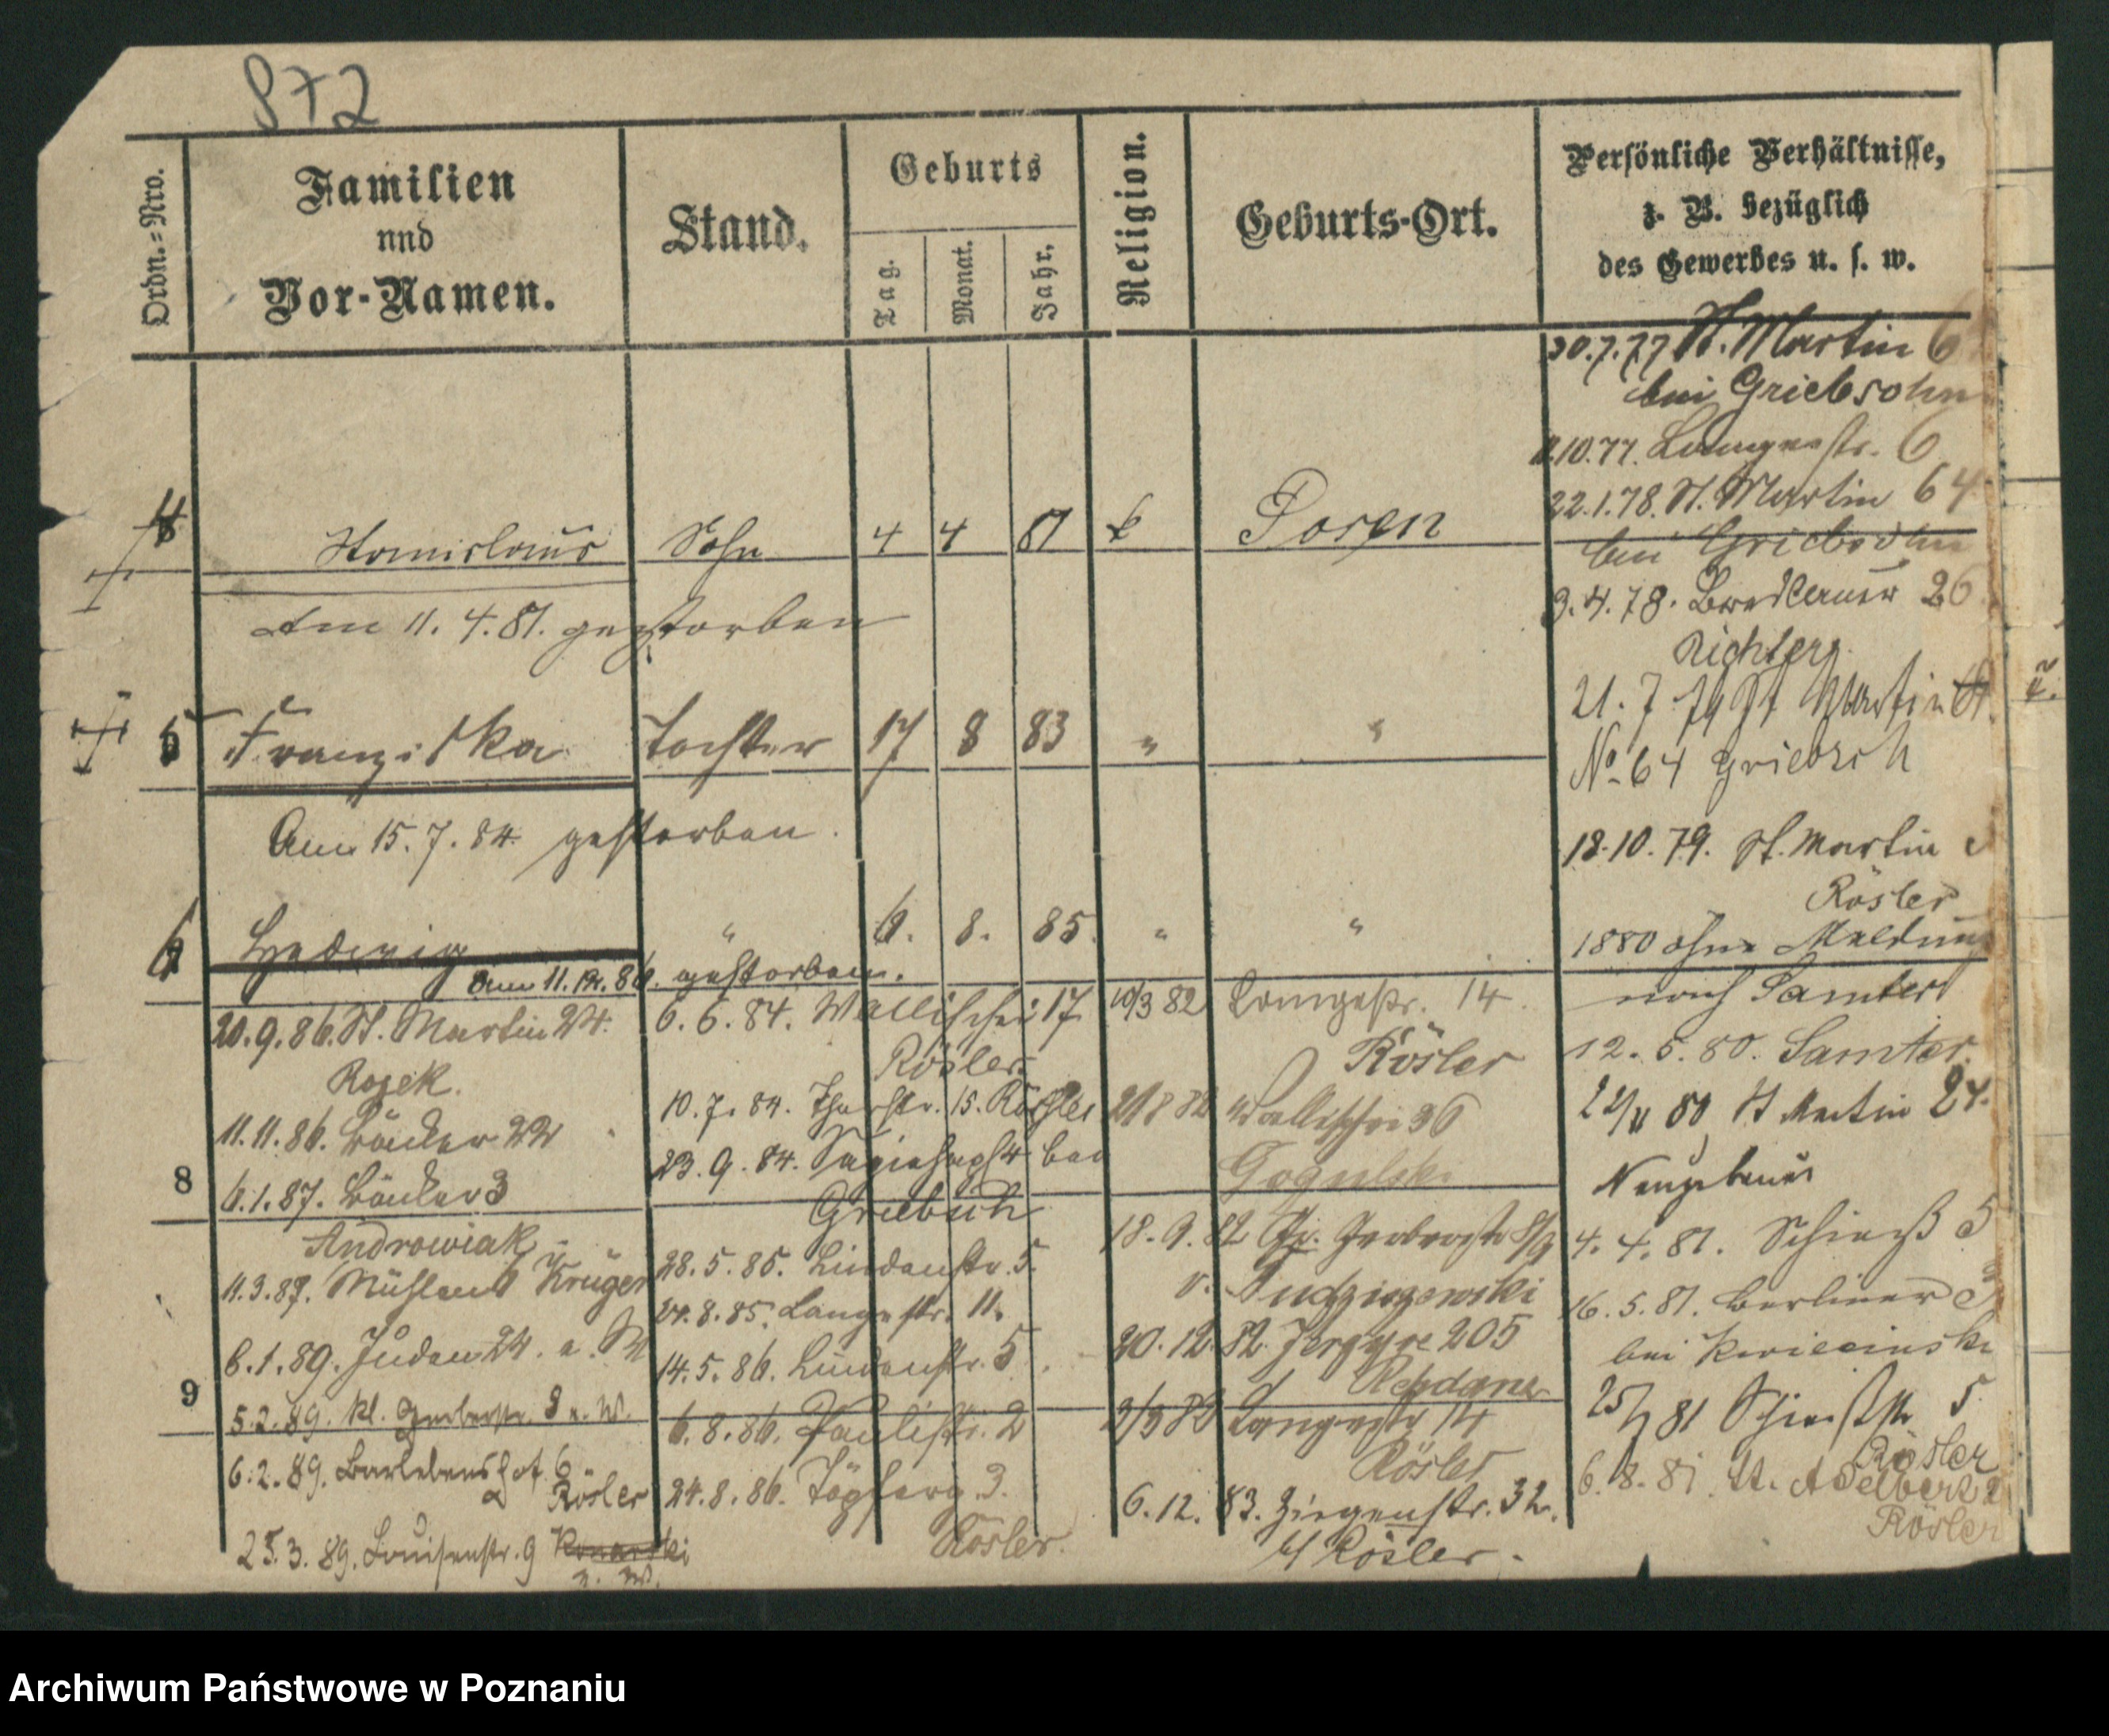 872
Ordn.=Nro.
Familien
und
Vor-Namen.
Stand.
Geburts
Tag.
Monat.
Jahr.
Religion.
Geburts-Ort.
Persönliche Verhältnisse,
z. B. bezüglich
des Gewerbes u. s. w.
4 Stanislaus Sohn 4 4 81 k Posen
Am 11. 4. 81. gestorben
5 Franziska Tochter 17 8 83 " "
Am 15. 7. 84. gestorben.
6 Hedwig " 6. 8. 85. " "
Am 11. 12. 86. gestorben.
8
9
20. 9. 86. St. Martin 24.
Rozek.
11. 11. 86. Bäcker 22
6. 1. 87. Bäcker 3
Androwiak
11. 3. 87. Mühlen Krüger
6. 1. 89. Juden 24.
5. 2. 89. kl. Gerberstr. 8 u. W.
6. 2. 89. Barlebenshof 6
Rösler
25. 3. 89. Louisenstr. 9 Konarski
6. 6. 84. Wallischei 17
Rösler
10. 7. 84. Thorstr. 15. Rösler
23. 9. 84. Sapiehapl 4 bei
Griebsch
28. 5. 85. Lindenstr. 5.
24. 8. 85. Langestr. 11.
14. 5. 86. Lindenstr. 5.
6. 8. 86. Paulistr. 2
24. 8. 86. 3.
Rösler.
10/3 82 Langestr. 14.
Rösler
21 8 82 Wallischei 36
Gogulski
18. 9. 82 Gr. Gerberstr 8/9
v. Pudziszewski
20. 12. 82. Jerzyce 205
Rehdanz
3/3 83 Langestr 14
Rösler
6. 12. 83. Ziegenstr. 32.
b/ Rösler.
30. 7. 77 St. Martin 6
bei Griebsohn
11. 10. 77. Langestr. 6
22. 1. 78. St. Martin 64
bei Griebsohn
3. 4. 78. Breslauer 26
Richter
21. 7 79 St Martin
No 64 Griebsch
18. 10. 79. St. Martin
Rösler
1880 ohne Meldung
nach Samter
12. 5. 80. Samter.
22/11 80 St Martin 24.
Neugebauer
4. 4. 81. Schieß 5
16. 5. 81. Berliner 3
bei Kwiecinski
25/7 81 Schießstr 5
Rösler
6. 8. 81. St. Adelbert 2
Rösler
Archiwum Państwowe w Poznaniu